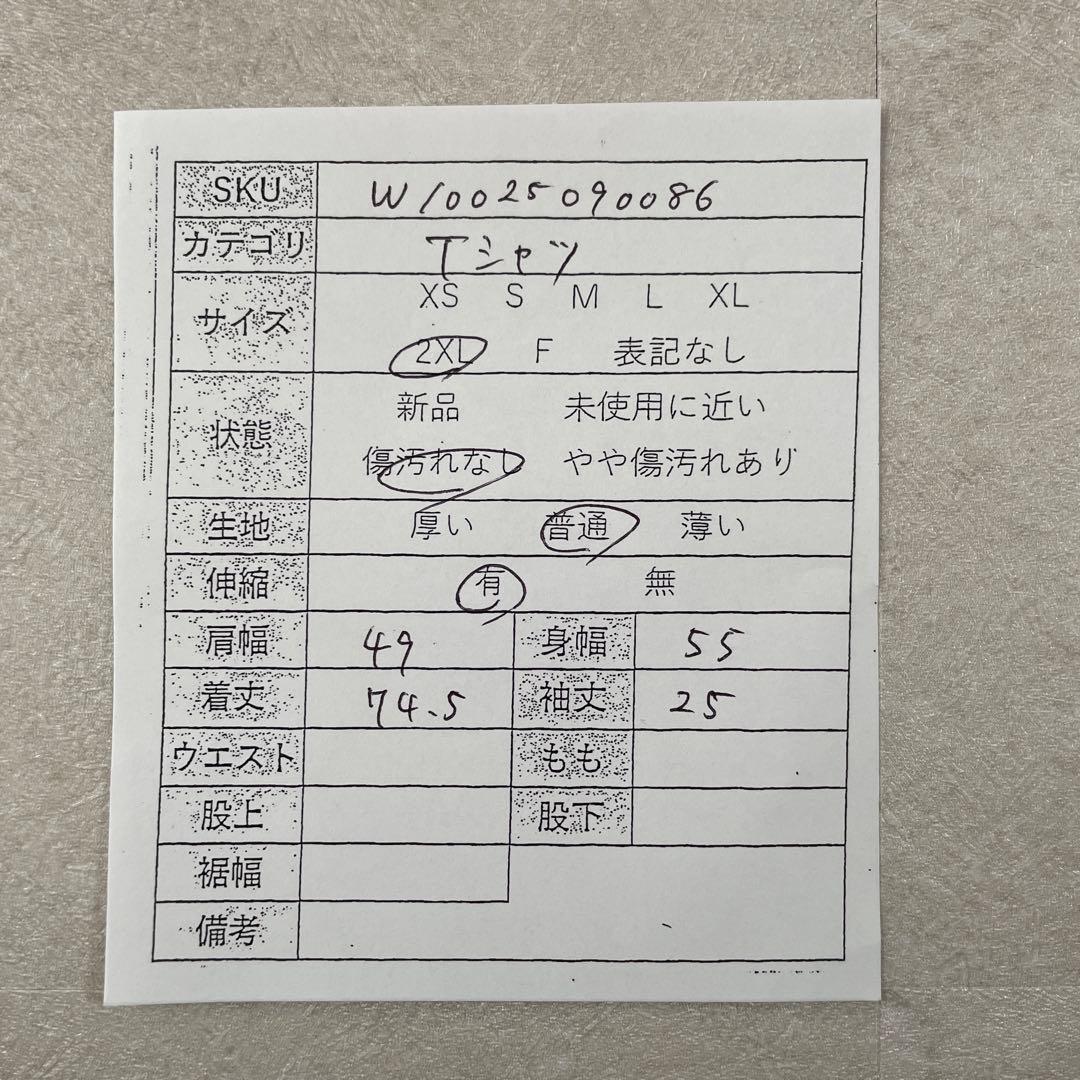 SKU W10025090086
カテゴリ Tシャツ
サイズ XS S M L XL
2XL F 表記なし
状態 新品 未使用に近い
傷汚れなし やや傷汚れあり
生地 厚い 普通 薄い
伸縮 有 無
肩幅 49 身幅 55
着丈 74.5 袖丈 25
ウエスト もも
股上 股下
裾幅
備考